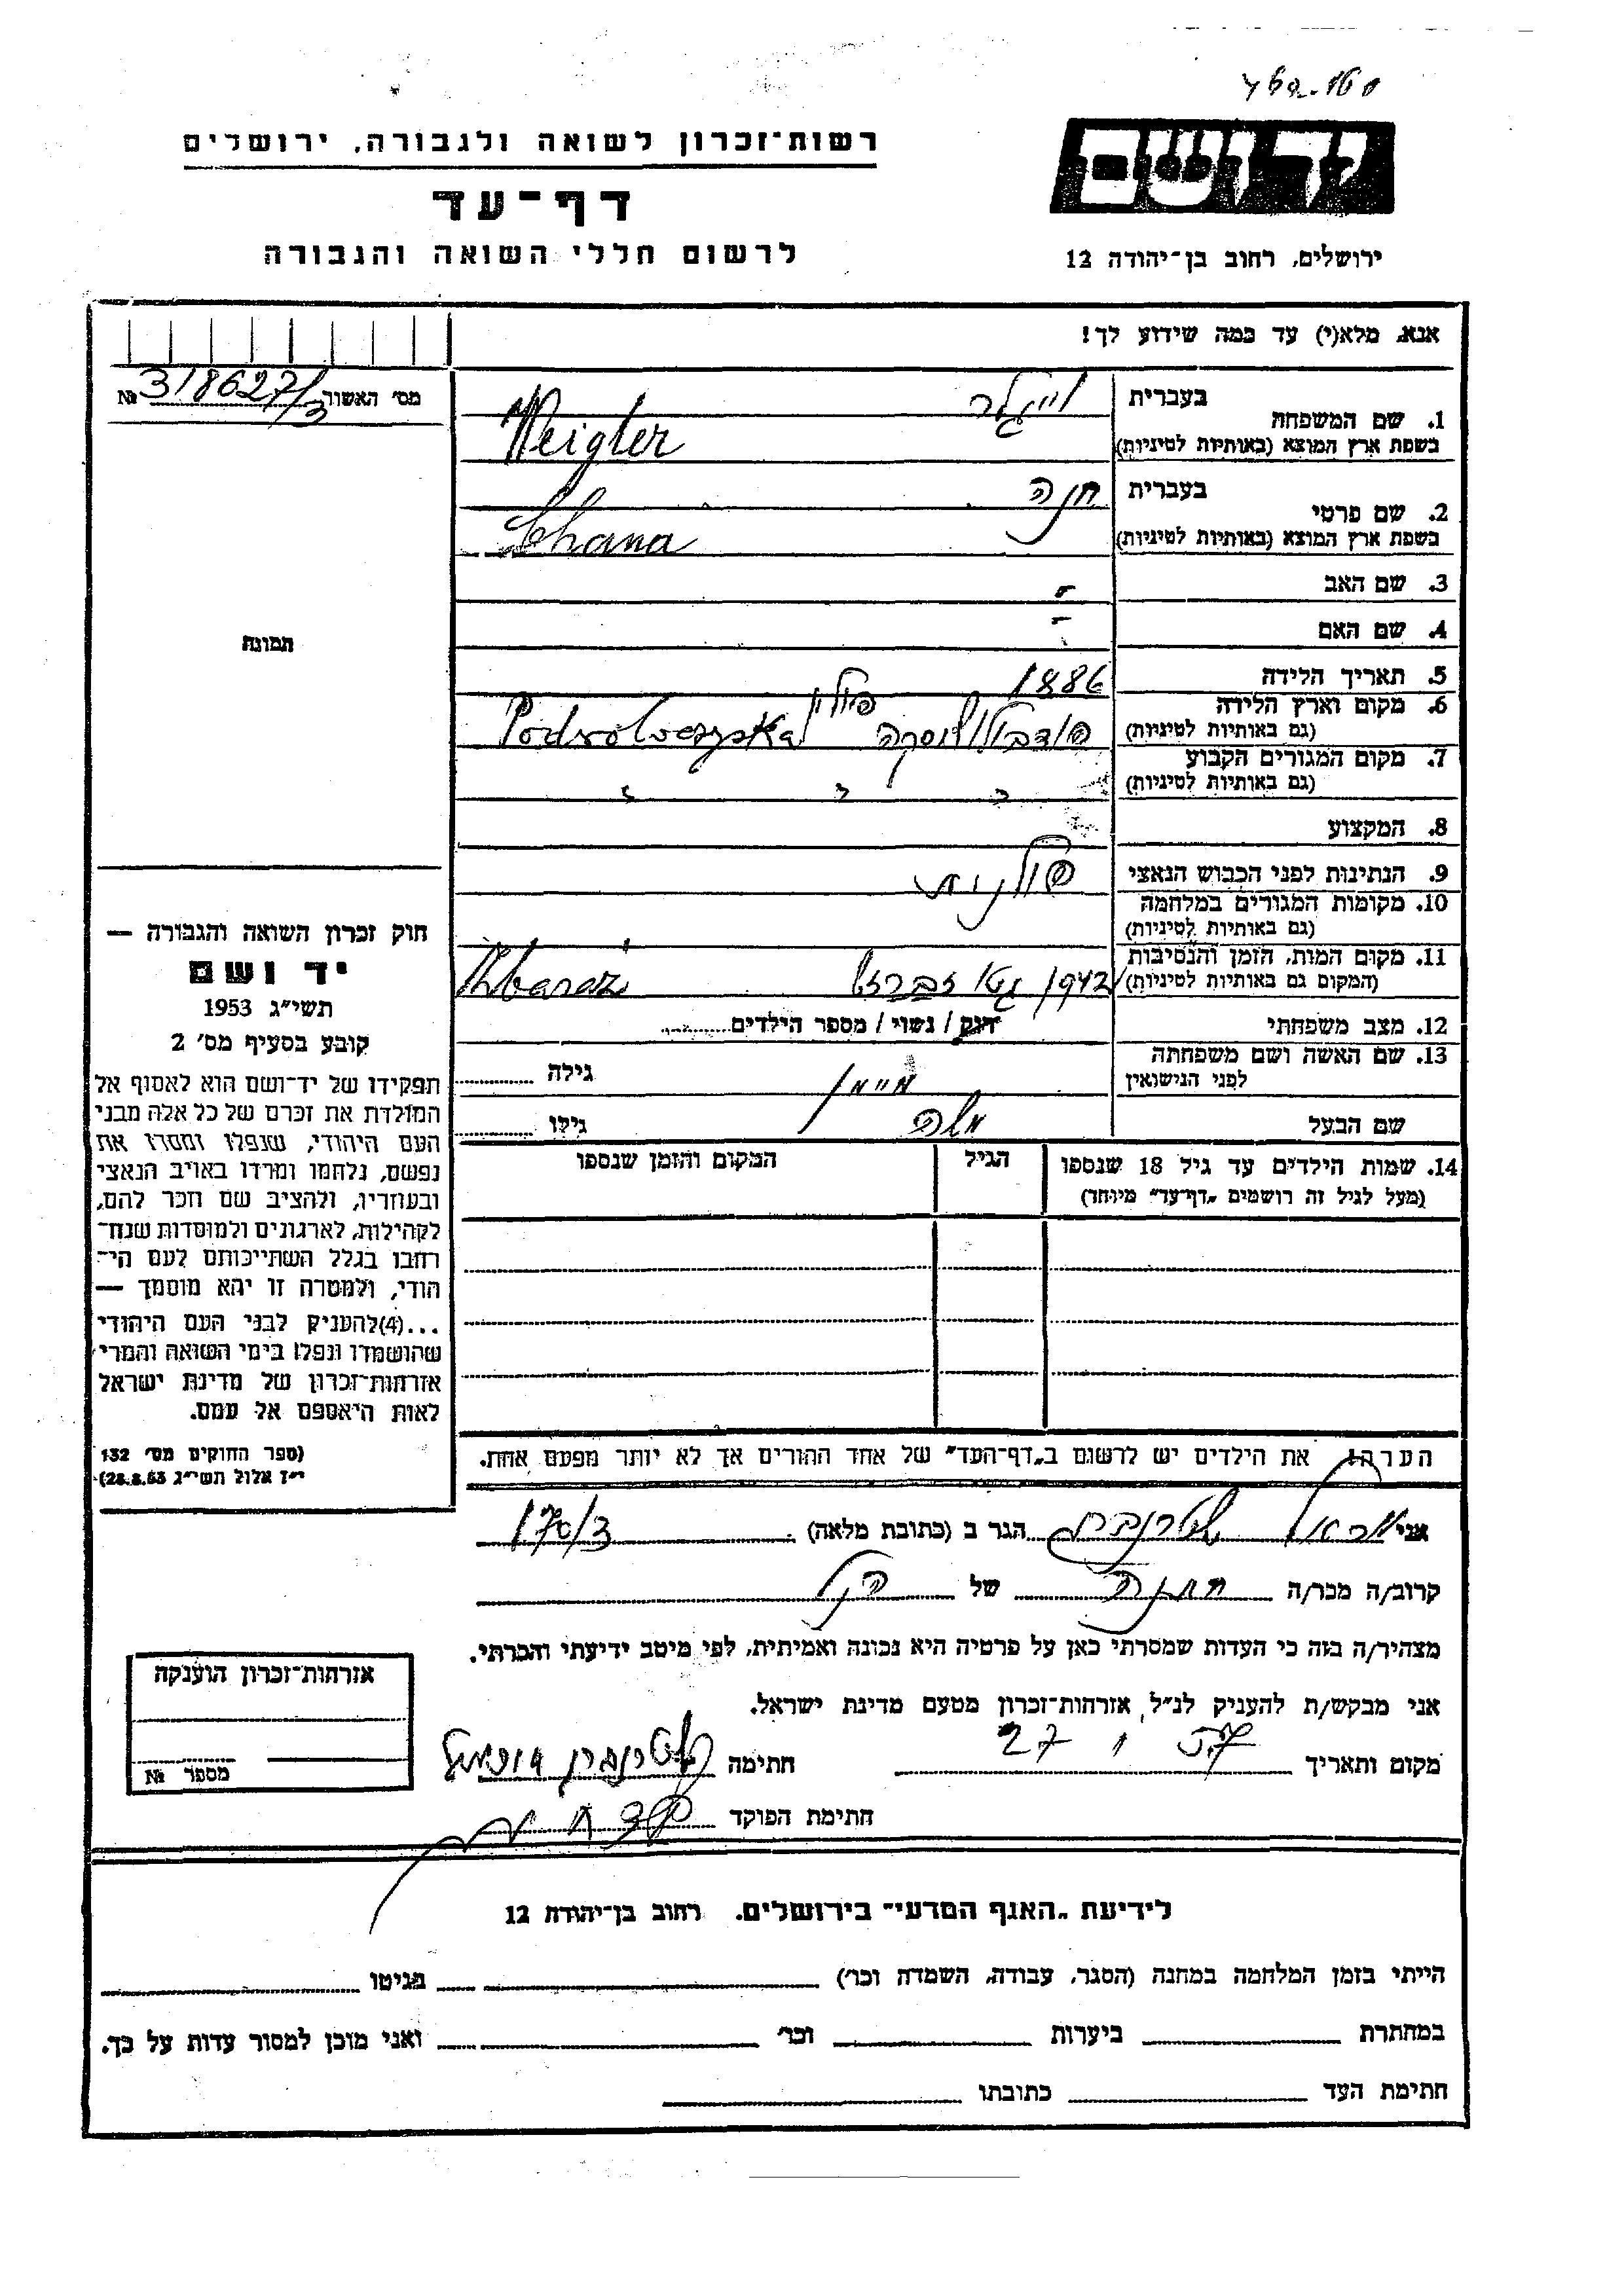 רשות־זכרון לשואה ולגבורה, ירושלים
דף־עד
לרשום חללי השואה והגבורה
יד ושם
ירושלים, רחוב בן־יהודה 12
אנא, מלא(י) עד כמה שידוע לך!
מס׳ האשור № 318627/3
1. שם המשפחה בעברית וייגלר
בשפת ארץ המוצא (באותיות לטיניות) Weigler
2. שם פרטי בעברית חנה
בשפת ארץ המוצא (באותיות לטיניות) Chana
3. שם האב -
4. שם האם -
5. תאריך הלידה 1886
6. מקום וארץ הלידה פולין
(גם באותיות לטיניות)
7. מקום המגורים הקבוע
(גם באותיות לטיניות)
8. המקצוע
9. הנתינות לפני הכבוש הנאצי פולנית
10. מקומות המגורים במלחמה
(גם באותיות לטיניות)
11. מקום המות, הזמן והנסיבות 1942 גטו זברז׳
(המקום גם באותיות לטיניות) Zbaraż
12. מצב משפחתי רווק / נשוי / מספר הילדים
13. שם האשה ושם משפחתה גילה
לפני הנישואין
שם הבעל משה גילו
14. שמות הילדים עד גיל 18 שנספו הגיל המקום והזמן שנספו
(מעל לגיל זה רושמים „דף־עד״ מיוחד)
תמונה
חוק זכרון השואה והגבורה —
יד ושם
תשי״ג 1953
קובע בסעיף מס׳ 2
תפקידו של יד־ושם הוא לאסוף אל
המולדת את זכרם של כל אלה מבני
העם היהודי, שנפלו ומסרו את
נפשם, נלחמו ומרדו באויב הנאצי
ובעוזריו, ולהציב שם וזכר להם,
לקהילות, לארגונים ולמוסדות שנח־
רבו בגלל השתייכותם לעם הי־
הודי, ולמטרה זו יהא מוסמך —
...(4)להעניק לבני העם היהודי
שהושמדו ונפלו בימי השואה והמרי
אזרחות־זכרון של מדינת ישראל
לאות היאספם אל עמם.
(ספר החוקים מס׳ 132
י״ז אלול תשי״ג 28.8.53)
הערה! את הילדים יש לרשום ב„דף־העד״ של אחד ההורים אך לא יותר מפעם אחת.
אני הגר ב (כתובת מלאה) 170/3
קרוב/ה מכר/ה של הנ״ל
מצהיר/ה בזה כי העדות שמסרתי כאן על פרטיה היא נכונה ואמיתית, לפי מיטב ידיעתי והכרתי.
אני מבקש/ת להעניק לנ״ל אזרחות־זכרון מטעם מדינת ישראל.
מקום ותאריך חתימה
חתימת הפוקד
אזרחות־זכרון הוענקה
מספר №
לידיעת „האגף המדעי״ בירושלים. רחוב בן־יהודה 12
הייתי בזמן המלחמה במחנה (הסגר, עבודה, השמדה וכו׳) בגיטו
במחתרת ביערות וכו׳ ואני מוכן למסור עדות על כך.
חתימת העד כתובתו